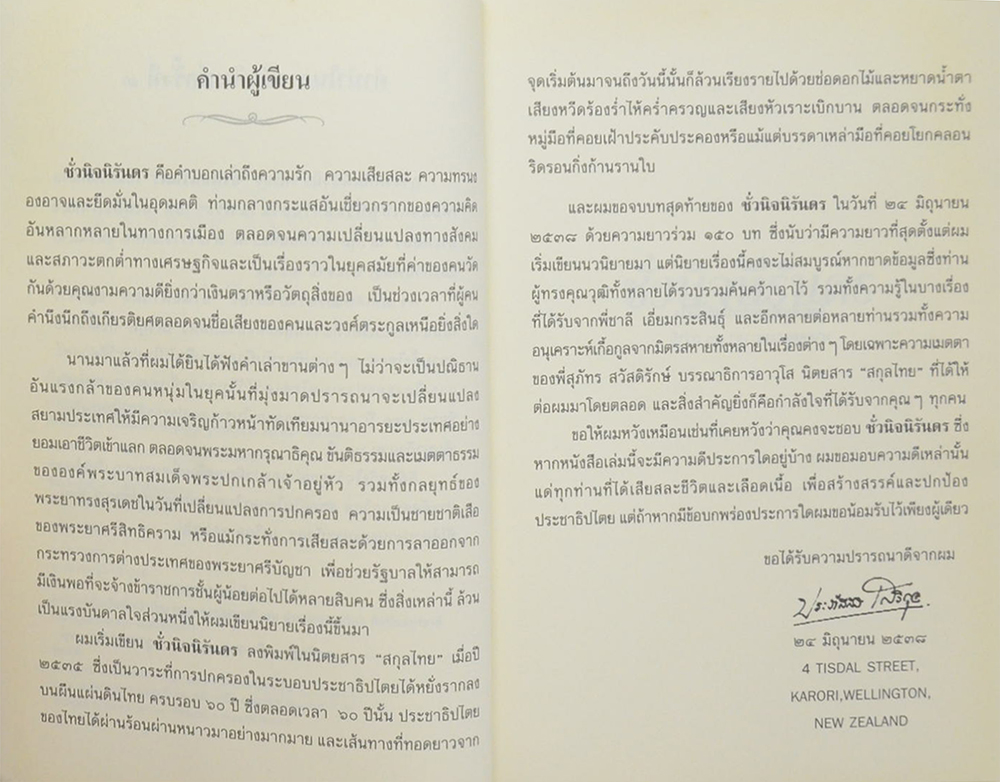 คำนำผู้เขียน
ชั่วนิจนิรันดร คือคำบอกเล่าถึงความรัก ความเสียสละ ความทรนง
องอาจและยึดมั่นในอุดมคติ ท่ามกลางกระแสอันเชี่ยวกรากของความคิด
อันหลากหลายในทางการเมือง ตลอดจนความเปลี่ยนแปลงทางสังคม
และสภาวะตกต่ำทางเศรษฐกิจและเป็นเรื่องราวในยุคสมัยที่ค่าของคนวัด
กันด้วยคุณงามความดียิ่งกว่าเงินตราหรือวัตถุสิ่งของ เป็นช่วงเวลาที่ผู้คน
คำนึงนึกถึงเกียรติยศตลอดจนชื่อเสียงของคนและวงศ์ตระกูลเหนือยิ่งสิ่งใด
นานมาแล้วที่ผมได้ยินได้ฟังคำเล่าขานต่างๆ ไม่ว่าจะเป็นปณิธาน
อันแรงกล้าของคนหนุ่มในยุคนั้นที่มุ่งมาดปรารถนาจะเปลี่ยนแปลง
สยามประเทศให้มีความเจริญก้าวหน้าทัดเทียมนานาอารยะประเทศอย่าง
ยอมเอาชีวิตเข้าแลก ตลอดจนพระมหากรุณาธิคุณ ขันติธรรมและเมตตาธรรม
ขององค์พระบาทสมเด็จพระปกเกล้าเจ้าอยู่หัว รวมทั้งกลยุทธ์ของ
พระยาทรงสุรเดชในวันที่เปลี่ยนแปลงการปกครอง ความเป็นชายชาติเสือ
ของพระยาศรีสิทธิคราม หรือแม้กระทั่งการเสียสละด้วยการลาออกจาก
กระทรวงการต่างประเทศของพระยาศรีบัญชา เพื่อช่วยรัฐบาลให้สามารถ
มีเงินพอที่จะจ้างข้าราชการชั้นผู้น้อยต่อไปได้หลายสิบคน ซึ่งสิ่งเหล่านี้ ล้วน
เป็นแรงบันดาลใจส่วนหนึ่งให้ผมเขียนนิยายเรื่องนี้ขึ้นมา
ผมเริ่มเขียน ชั่วนิจนิรันดร ลงพิมพ์ในนิตยสาร “สกุลไทย” เมื่อปี
๒๕๓๕ ซึ่งเป็นวาระที่การปกครองในระบอบประชาธิปไตยได้หยั่งรากลง
บนผืนแผ่นดินไทย ครบรอบ ๖๐ ปี ซึ่งตลอดเวลา ๖๐ ปีนั้น ประชาธิปไตย
ของไทยได้ผ่านร้อนผ่านหนาวมาอย่างมากมาย และเส้นทางที่ทอดยาวจาก
จุดเริ่มต้นมาจนถึงวันนี้นั้นก็ล้วนเรียงรายไปด้วยช่อดอกไม้และหยาดน้ำตา
เสียงหวีดร้องร่ำไห้คร่ำครวญและเสียงหัวเราะเบิกบาน ตลอดจนกระทั่ง
หมู่มือที่คอยเฝ้าประคับประคองหรือแม้แต่บรรดาเหล่ามือที่คอยโยกคลอน
ริดรอนกิ่งก้านรานใบ
และผมขอจบบทสุดท้ายของ ชั่วนิจนิรันดร ในวันที่ ๒๔ มิถุนายน
๒๕๓๘ ด้วยความยาวร่วม ๑๕๐ บท ซึ่งนับว่ามีความยาวที่สุดตั้งแต่ผม
เริ่มเขียนนวนิยายมา แต่นิยายเรื่องนี้คงจะไม่สมบูรณ์หากขาดข้อมูลซึ่งท่าน
ผู้ทรงคุณวุฒิทั้งหลายได้รวบรวมค้นคว้าเอาไว้ รวมทั้งความรู้ในบางเรื่อง
ที่ได้รับจากพี่ชาลี เอี่ยมกระสินธุ์ และอีกหลายต่อหลายท่านรวมทั้งความ
อนุเคราะห์เกื้อกูลจากมิตรสหายทั้งหลายในเรื่องต่างๆ โดยเฉพาะความเมตตา
ของพี่สุภัทร สวัสดิรักษ์ บรรณาธิการอาวุโส นิตยสาร “สกุลไทย” ที่ได้ให้
ต่อผมมาโดยตลอด และสิ่งสำคัญยิ่งก็คือกำลังใจที่ได้รับจากคุณๆ ทุกคน
ขอให้ผมหวังเหมือนเช่นที่เคยหวังว่าคุณคงจะชอบ ชั่วนิจนิรันดร ซึ่ง
หากหนังสือเล่มนี้จะมีความดีประการใดอยู่บ้าง ผมขอมอบความดีเหล่านั้น
แด่ทุกท่านที่ได้เสียสละชีวิตและเลือดเนื้อ เพื่อสร้างสรรค์และปกป้อง
ประชาธิปไตย แต่ถ้าหากมีข้อบกพร่องประการใดผมขอน้อมรับไว้เพียงผู้เดียว
ขอได้รับความปรารถนาดีจากผม
๒๔ มิถุนายน ๒๕๓๘
4 TISDAL STREET,
KARORI,WELLINGTON,
NEW ZEALAND